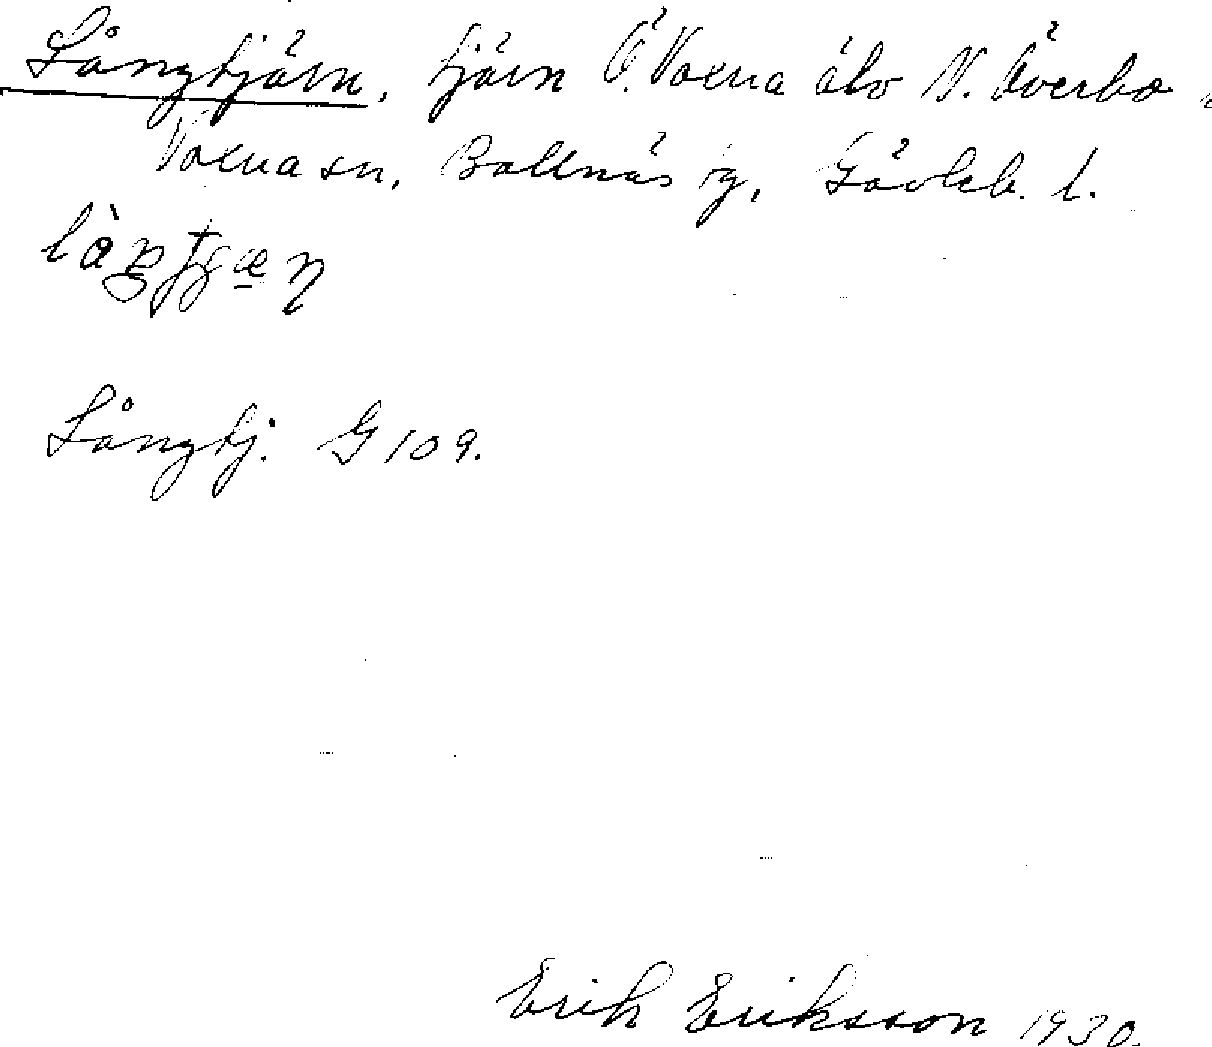 Långtjärn, tjärn Ö. Voxna älv N. Överbo,
Voxna sn, Bollnäs fg, Gävleb. l.
Långtj. G 109.
Erik Eriksson 1930.